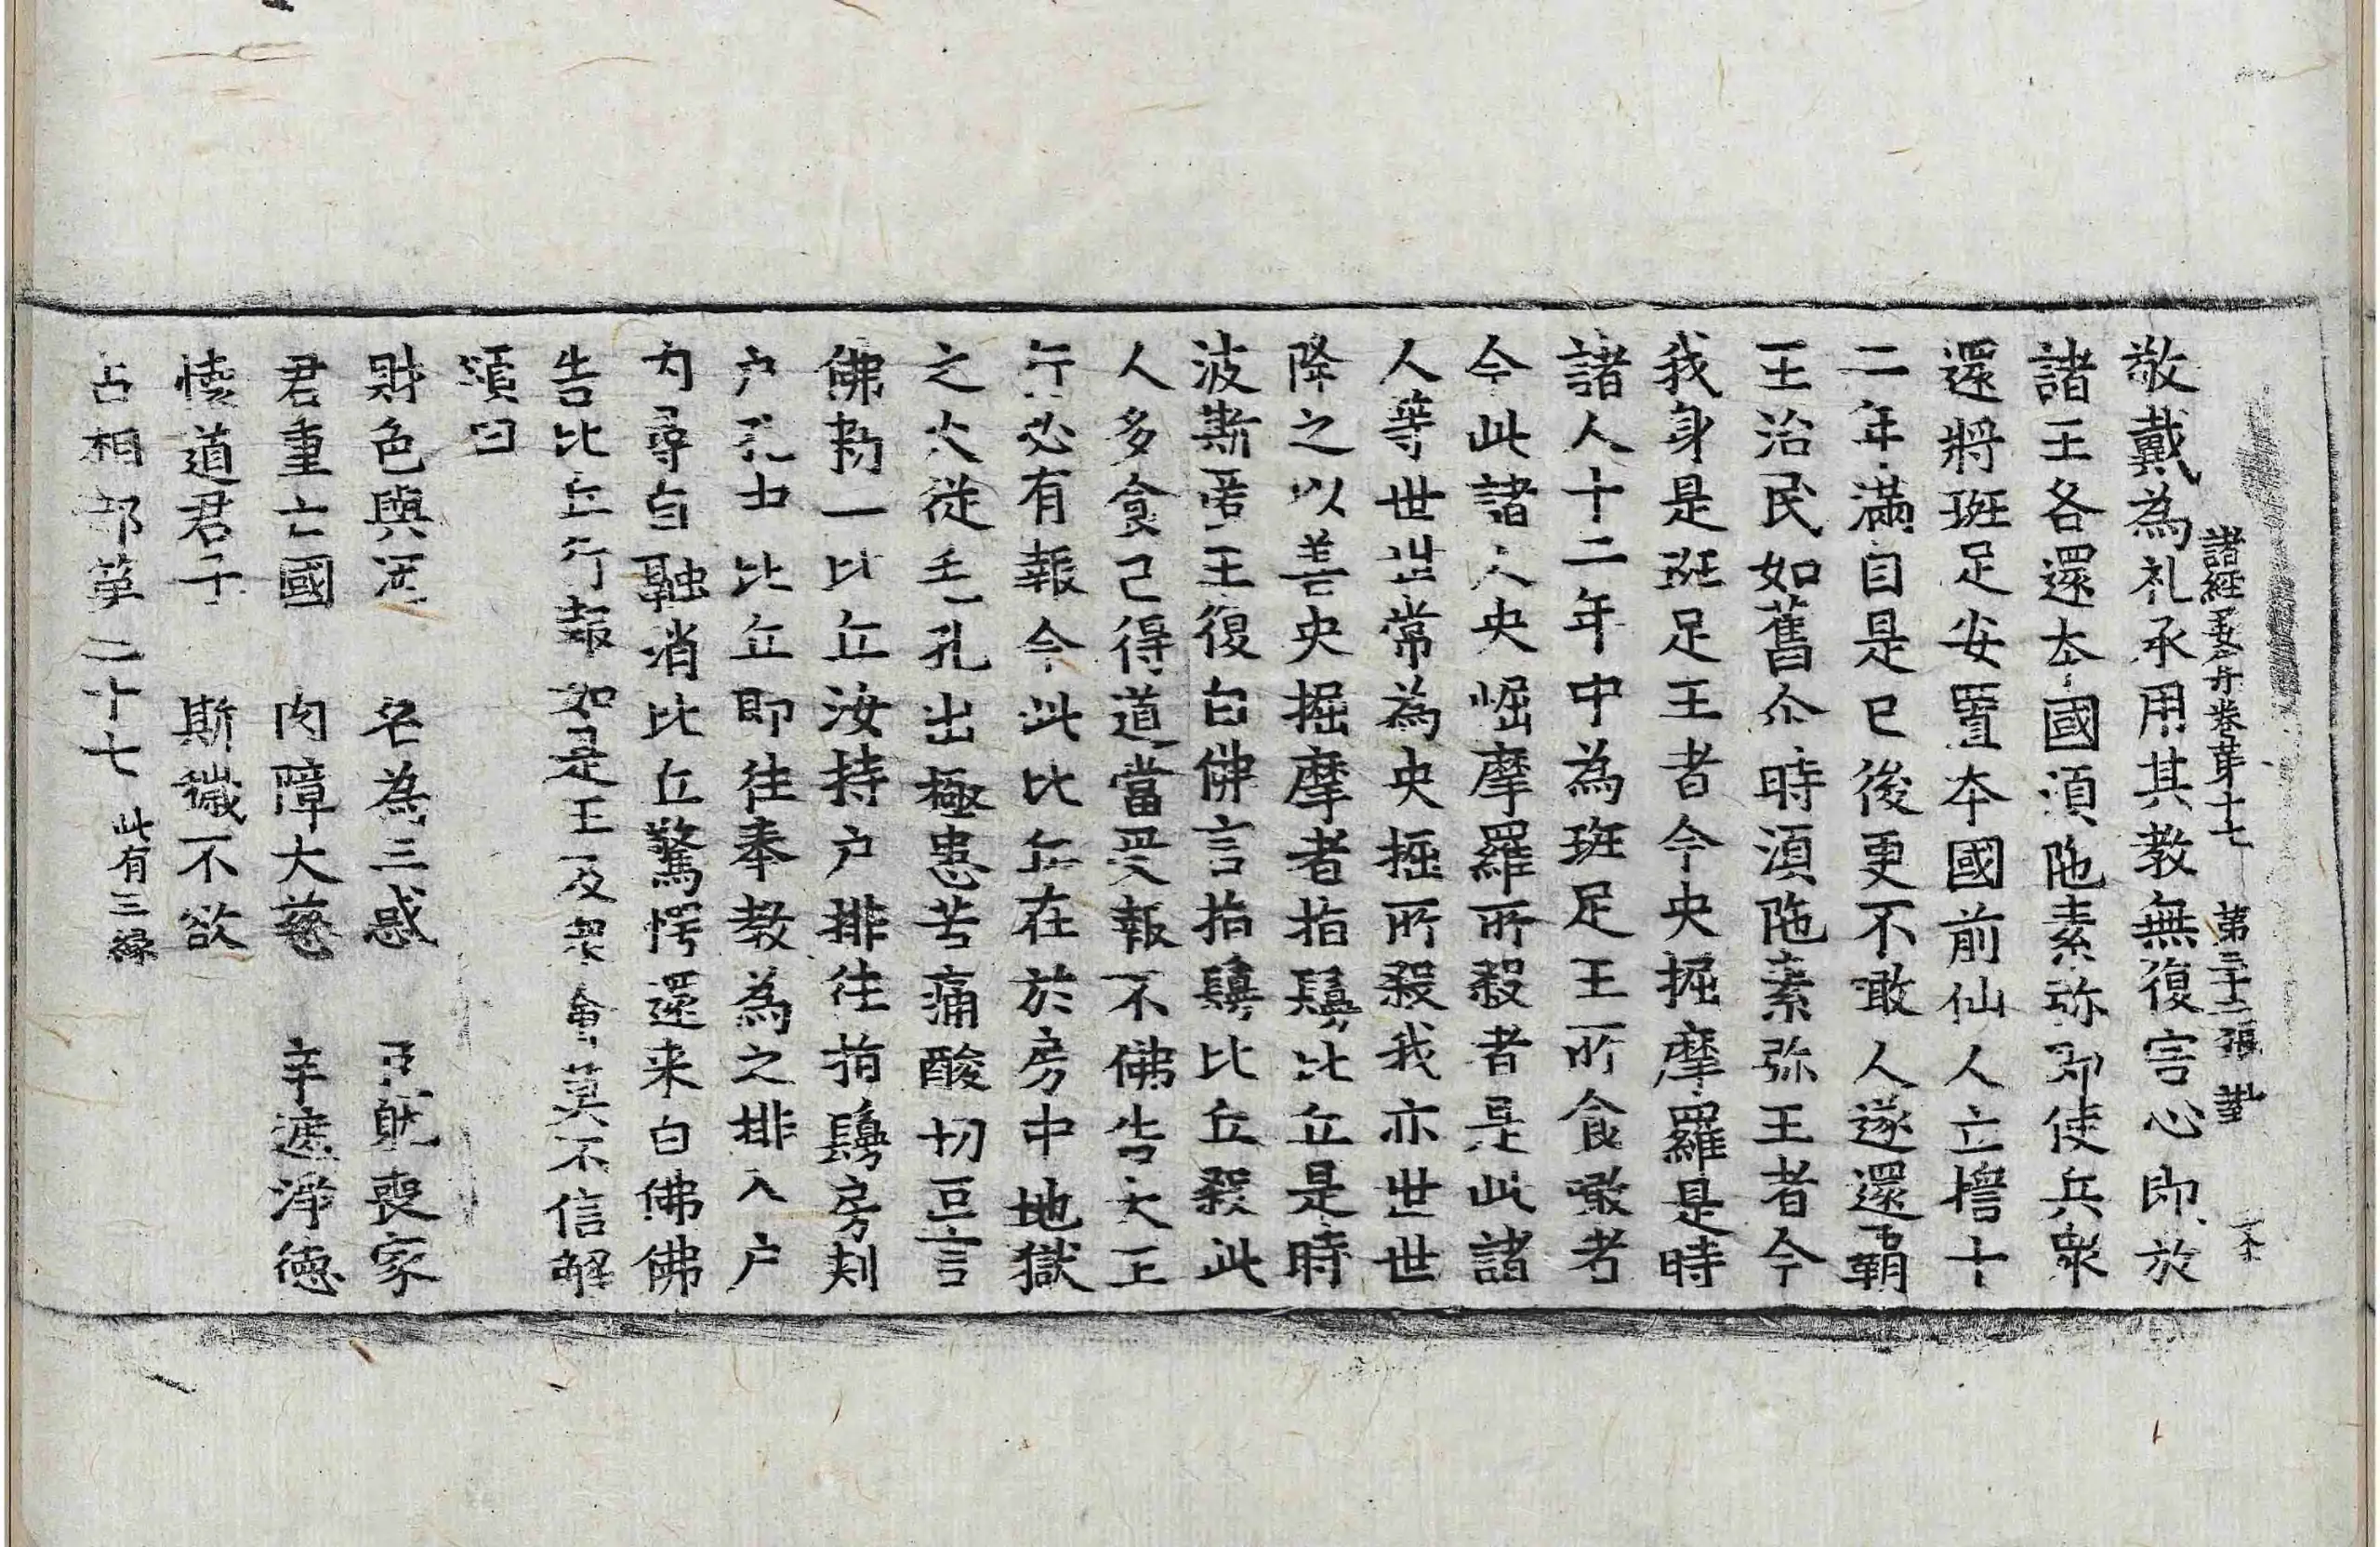 敬戴為礼承用其教無復害心即放
諸経要集卷苐十七 第三十二張
諸王各還本國湏陁素弥即使兵衆
還將班足安置本國前仙人立擔十
二年滿自是已後更不敢人遂還霸
王治民如舊尒時湏陁素弥王者今
我身是班足王者今央掘摩羅是時
諸人十二年中為班足王所食噉者
今此諸人央崛摩羅所殺者是此諸
人等世世常為央掘所殺我亦世世
降之以善央掘摩者指鬘比丘是時
波斯匿王復白佛言指鬘比丘殺此
人多食已得道當受報不佛告大王
行必有報今此比丘在於房中地獄
之火從毛孔出極患苦痛酸切叵言
佛勑一比丘汝持户排往指鬘房刾
户孔中比丘即往奉教為之排入户
内尋自融消比丘驚愕還来白佛佛
告比丘行報如是王及衆會莫不信解
頌曰
財色與酒 名為三惑 臣躭喪家
君重亡國 内障大慈 辛遮淨德
懐道君子 斯穢不欲
占相部苐二十七 此有三緣